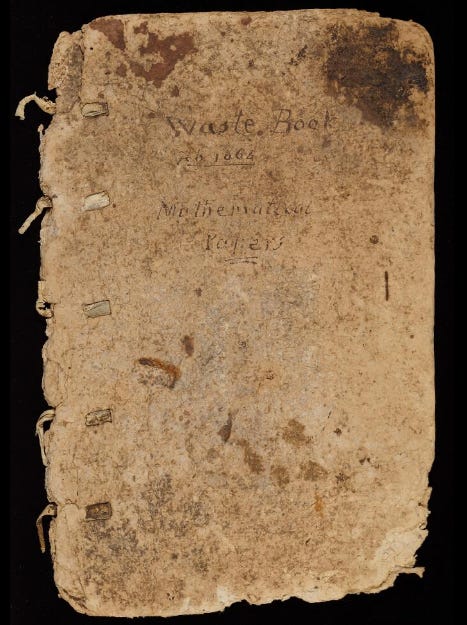 Waste Book
Mathematical
Papers